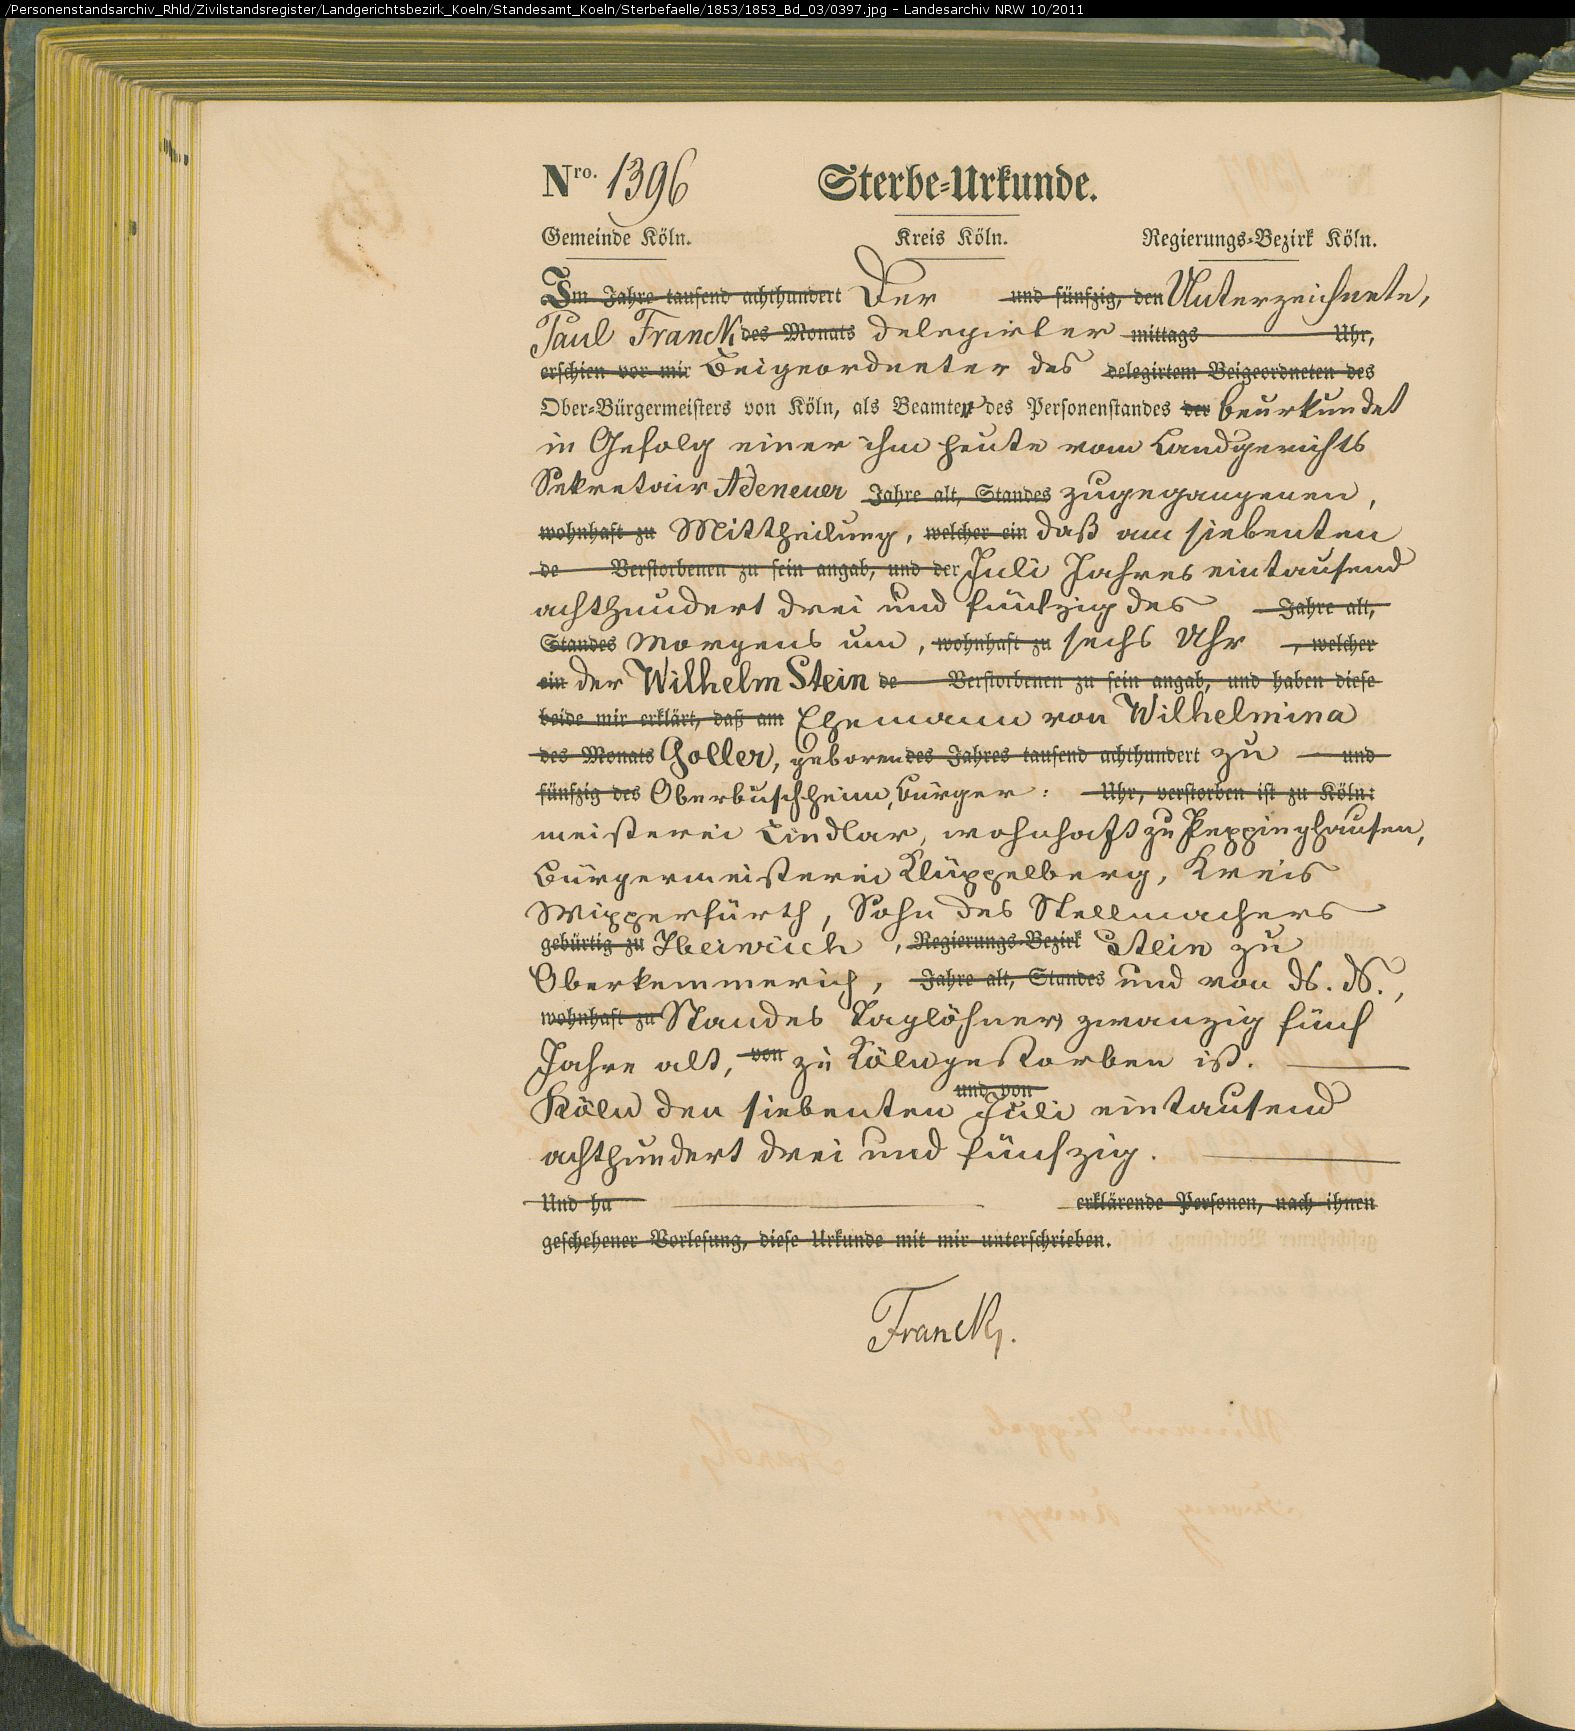 /Personenstandsarchiv_Rhld/Zivilstandsregister/Landgerichtsbezirk_Koeln/Standesamt_Koeln/Sterbefaelle/1853/1853_Bd_03/0397.jpg - Landesarchiv NRW 10/2011
Nro. 1396 Sterbe-Urkunde.
Gemeinde Köln. Kreis Köln. Regierungs-Bezirk Köln.
Im Jahre tausend achthundert Der und fünfzig, den Unterzeichnete,
Paul Franck des Monats delegirter mittags Uhr,
erschien vor mir Beigeordneter des delegirtem Beigeordneten des
Ober-Bürgermeisters von Köln, als Beamter des Personenstandes der beurkundet
in Gefolg einer ihm heute vom Landgerichts
Sekretair Adeneuer Jahre alt, Standes zugegangenen,
wohnhaft zu Mittheilung, welcher ein daß am siebenten
de Verstorbenen zu sein angab, und der Juli Jahres eintausend
achthundert drei und fünfzig des Jahre alt,
Standes Morgens um, wohnhaft zu sechs Uhr , welcher
ein der Wilhelm Stein de Verstorbenen zu sein angab, und haben diese
beide mir erklärt, daß am Ehemann von Wilhelmina
des Monats Goller, geboren des Jahres tausend achthundert zu und
fünfzig des Oberbuschheim, Bürger: Uhr, verstorben ist zu Köln:
meisterei Lindlar, wohnhaft zu Peppinghausen,
Bürgermeisterei Klüppelberg, Kreis
Wipperfürth, Sohn des Stellmachers
gebürtig zu Heinrich , Regierungs-Bezirk Stein zu
Oberkemmerich, Jahre alt, Standes und von ds. ds.,
wohnhaft zu Standes Taglöhner, zwanzig fünf
Jahre alt, von zu Köln gestorben ist.
und von
Köln den siebenten Juli eintausend
achthundert drei und fünfzig.
Und ha erklärende Personen, nach ihnen
geschehener Vorlesung, diese Urkunde mit mir unterschrieben.
Franck.